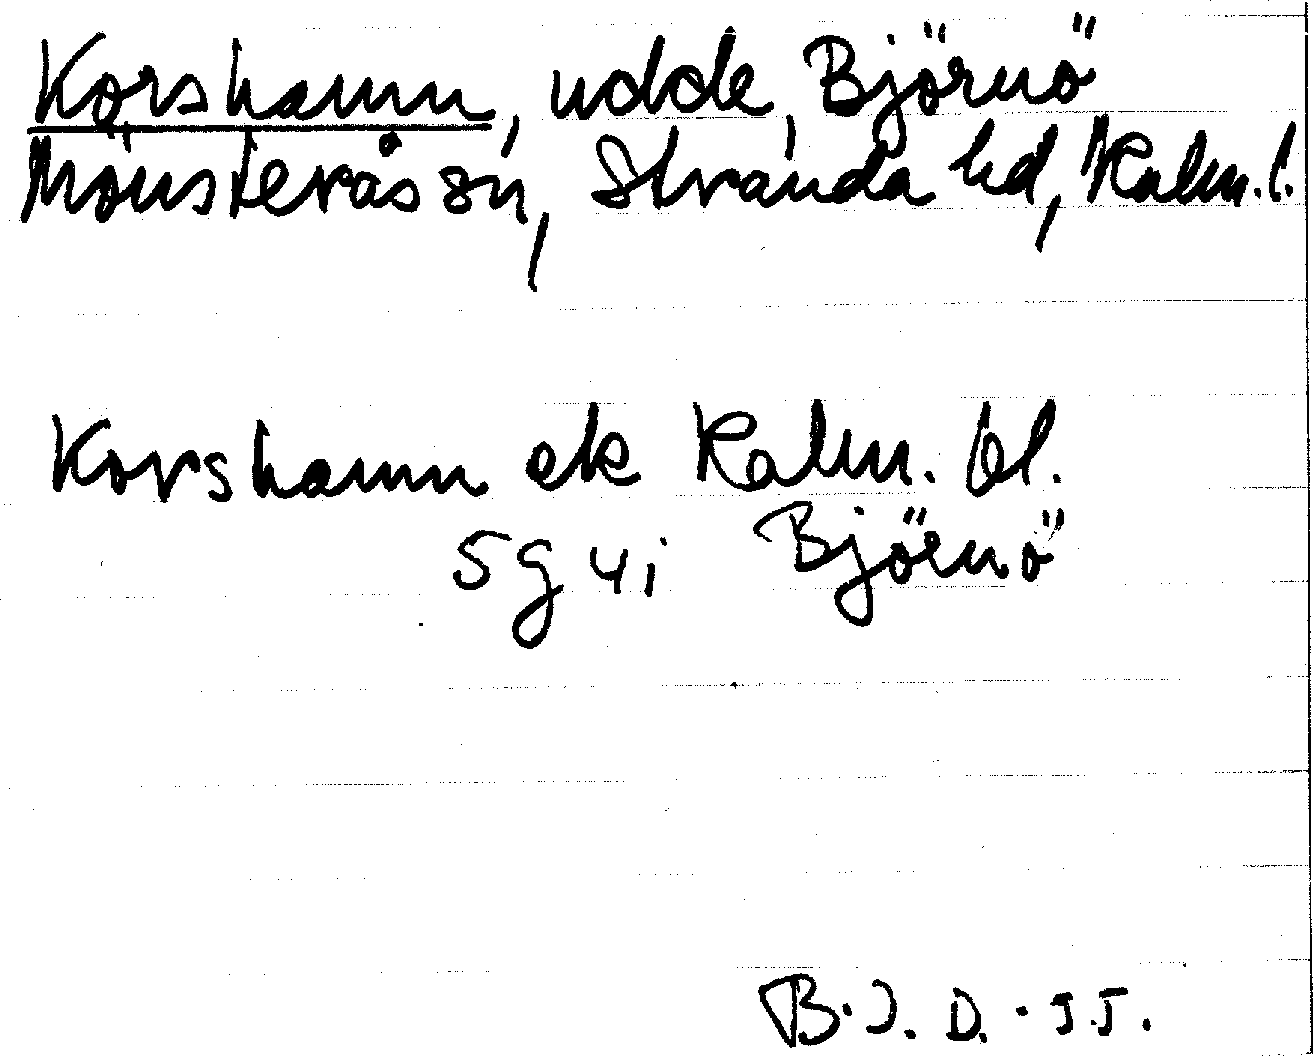 Korshamn, udde, Björnö
Mönsterås sn, Stranda hd, Kalm. l.
Korshamn ek Kalm. bl.
5g 4i Björnö
B. J. D.